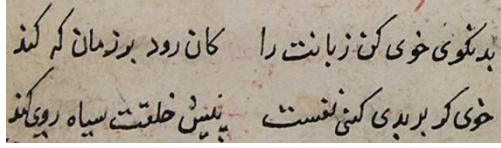 بد نگوی خوی کن زبانت را کان رود بر زمان که کند
خوی کر بر بدی کنی نفست پیش خلقت سیاه روی کند